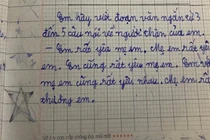 Em hãy viết đoạn văn ngắn từ 3
đến 5 câu nói về người thân của em.
- Em rất yêu mẹ em. Mẹ em rất yêu
em. Em cũng rất yêu mẹ em. Em
mẹ em cũng rất yêu nhau. Mẹ em rất
thương em.